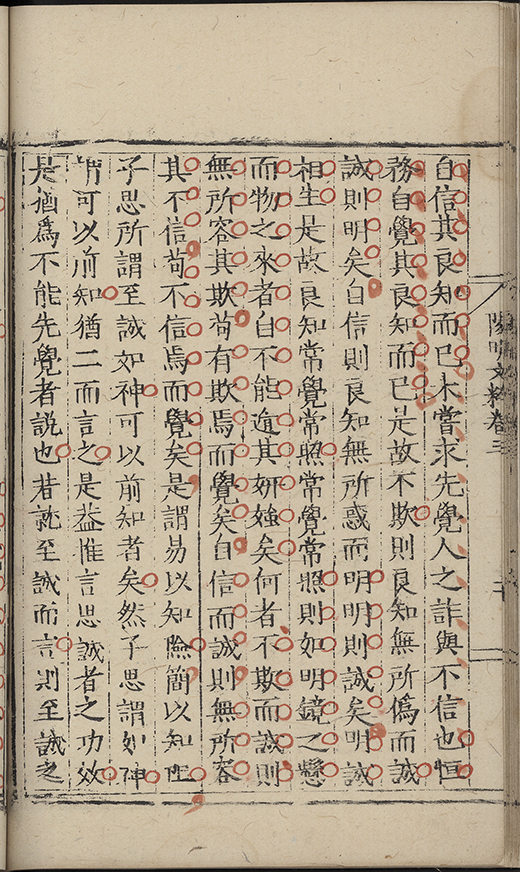 陽明文粹卷三
自信其良知而已未嘗求先覺人之詐與不信也恒
務自覺其良知而已是故不欺則良知無所偽而誠
誠則明矣自信則良知無所惑而明明則誠矣明誠
相生是故良知常覺常照常覺常照則如明鏡之懸
而物之來者自不能遁其妍媸矣何者不欺而誠則
無所容其欺苟有欺焉而覺矣自信而誠則無所容
其不信苟不信焉而覺矣是謂易以知險簡以知阻
子思所謂至誠如神可以前知者矣然子思謂如神
謂可以前知猶二而言之是蓋推言思誠者之功效
是猶為不能先覺者說也若就至誠而言則至誠之